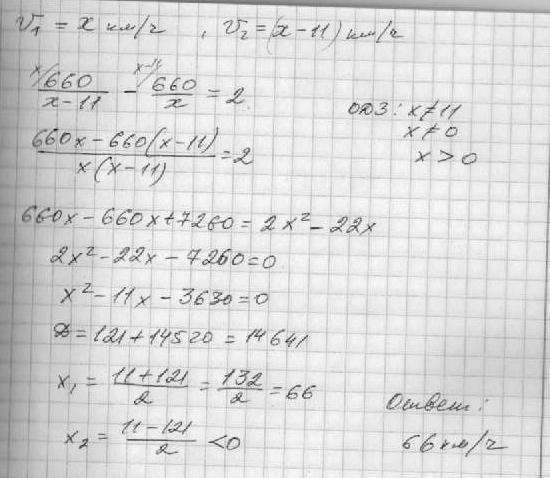 V₁ = x км/ч , V₂ = (x - 11) км/ч
x/ 660/(x-11) - x-11/ 660/x = 2
ОДЗ: x ≠ 11
x ≠ 0
x > 0
(660x - 660(x-11))/(x(x-11)) = 2
660x - 660x + 7260 = 2x² - 22x
2x² - 22x - 7260 = 0
x² - 11x - 3630 = 0
D = 121 + 14520 = 14641
x₁ = (11+121)/2 = 132/2 = 66
x₂ = (11-121)/2 < 0
Ответ:
66 км/ч